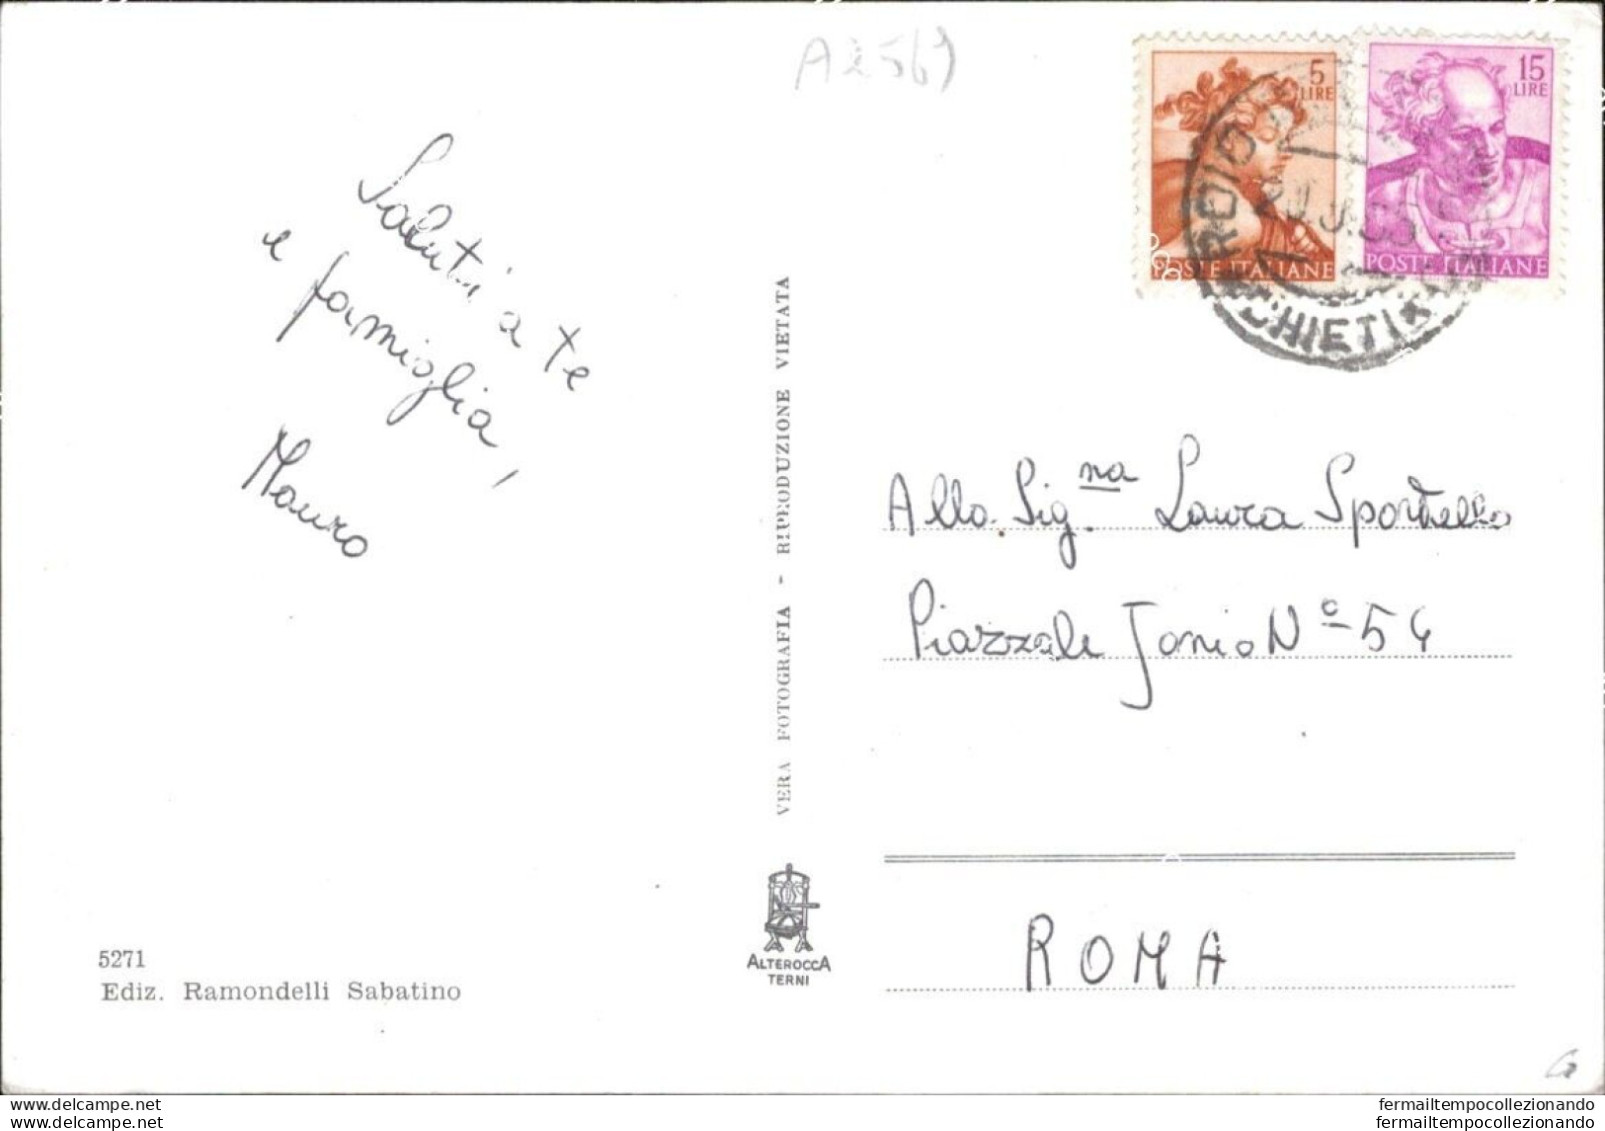 A2569
5
LIRE
15
LIRE
POSTE ITALIANE
POSTE ITALIANE
CHIETI
Saluti a te
e famiglia,
Mauro
VERA FOTOGRAFIA - RIPRODUZIONE VIETATA
Alla Sig.na Laura Sportello
Piazzale Jonio N° 54
ROMA
ALTEROCCA
TERNI
5271
Ediz. Ramondelli Sabatino
fermailtempocollezionando
fermailtempocollezionando
www.delcampe.net
www.delcampe.net